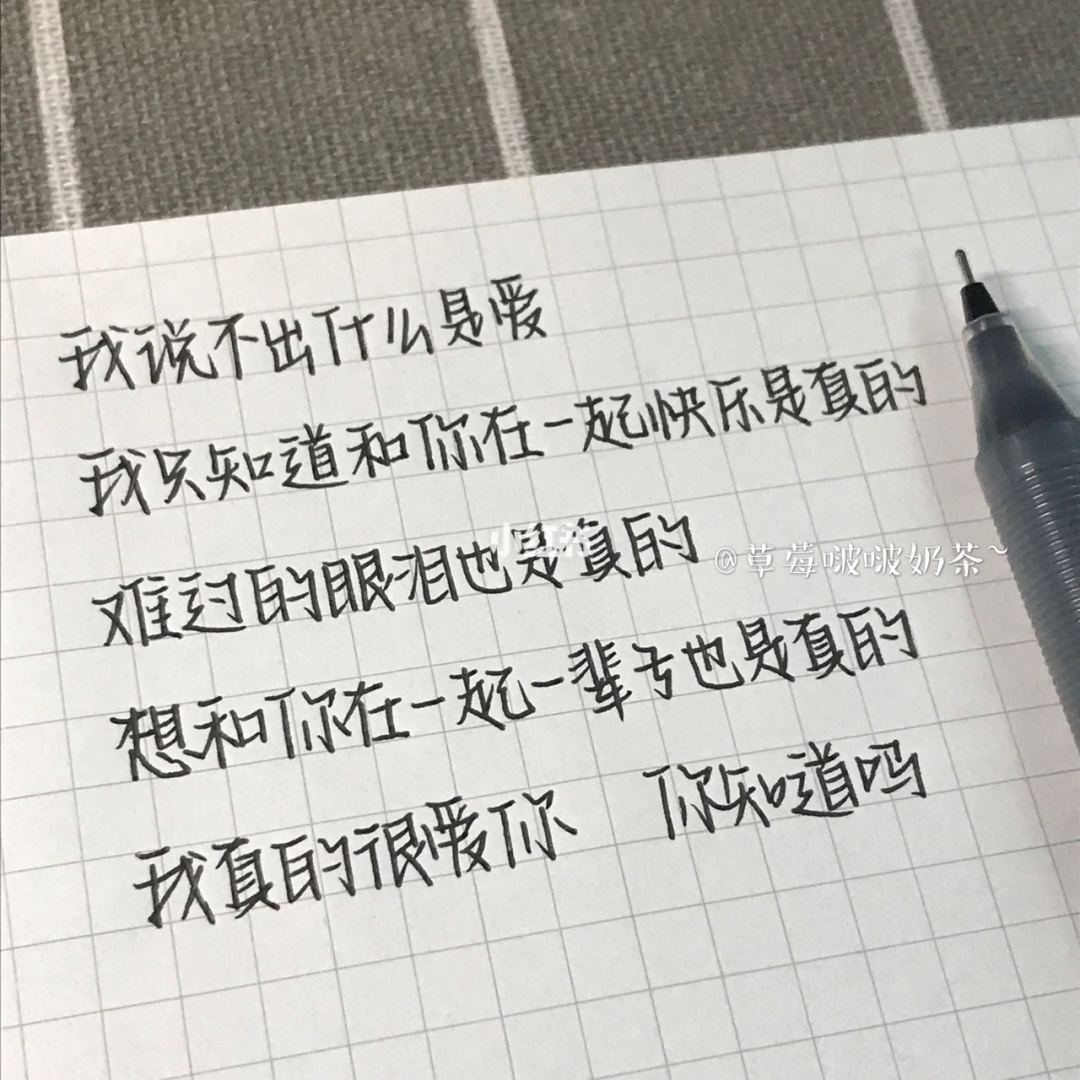 我说不出什么是爱
我只知道和你在一起快乐是真的
难过的眼泪也是真的
小红书
@草莓啵啵奶茶~
想和你在一起一辈子也是真的
我真的很爱你 你知道吗